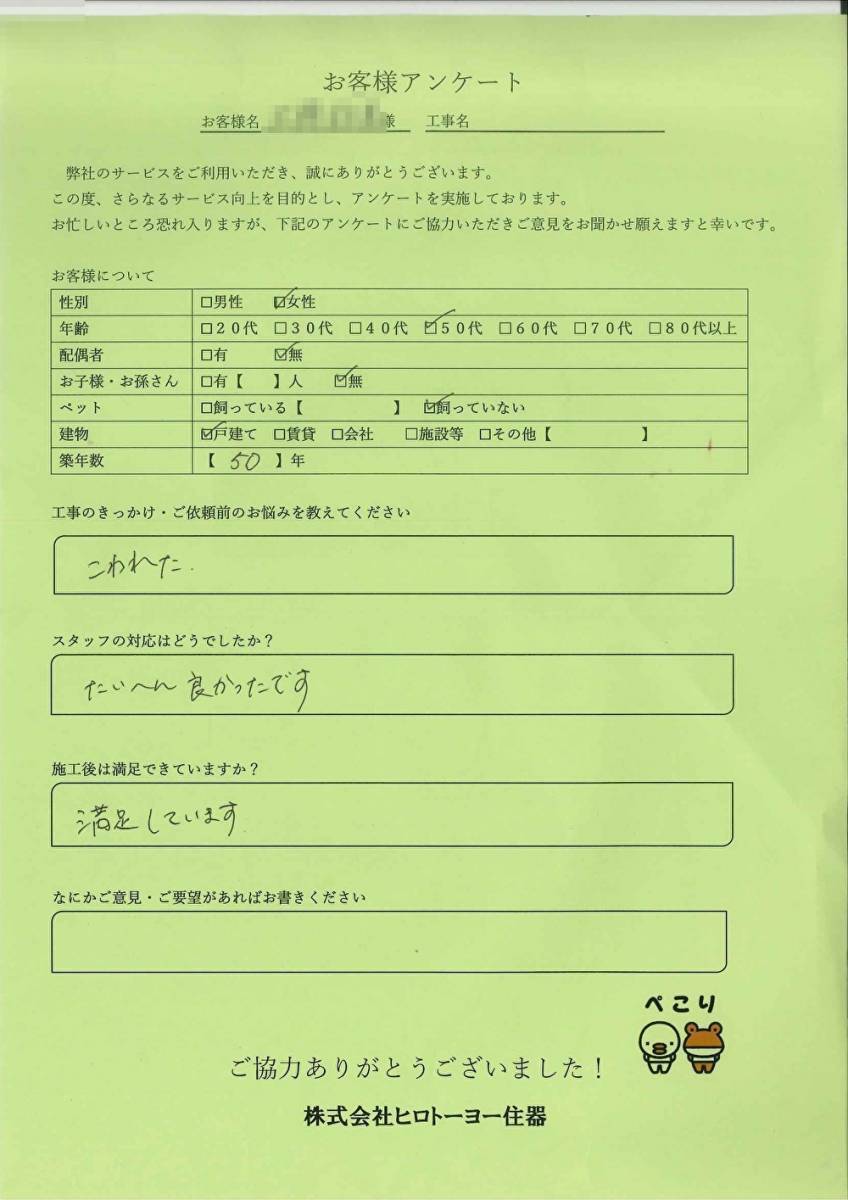 お客様アンケート
お客様名 様 工事名
弊社のサービスをご利用いただき、誠にありがとうございます。
この度、さらなるサービス向上を目的とし、アンケートを実施しております。
お忙しいところ恐れ入りますが、下記のアンケートにご協力いただきご意見をお聞かせ願えますと幸いです。
お客様について
性別 □男性 ☑女性
年齢 □20代 □30代 □40代 ☑50代 □60代 □70代 □80代以上
配偶者 □有 ☑無
お子様・お孫さん □有【 】人 ☑無
ペット □飼っている【 】 ☑飼っていない
建物 ☑戸建て □賃貸 □会社 □施設等 □その他【 】
築年数 【 50 】年
工事のきっかけ・ご依頼前のお悩みを教えてください
こわれた.
スタッフの対応はどうでしたか？
たいへん良かったです
施工後は満足できていますか？
満足しています
なにかご意見・ご要望があればお書きください
ぺこり
ご協力ありがとうございました！
株式会社ヒロトーヨー住器